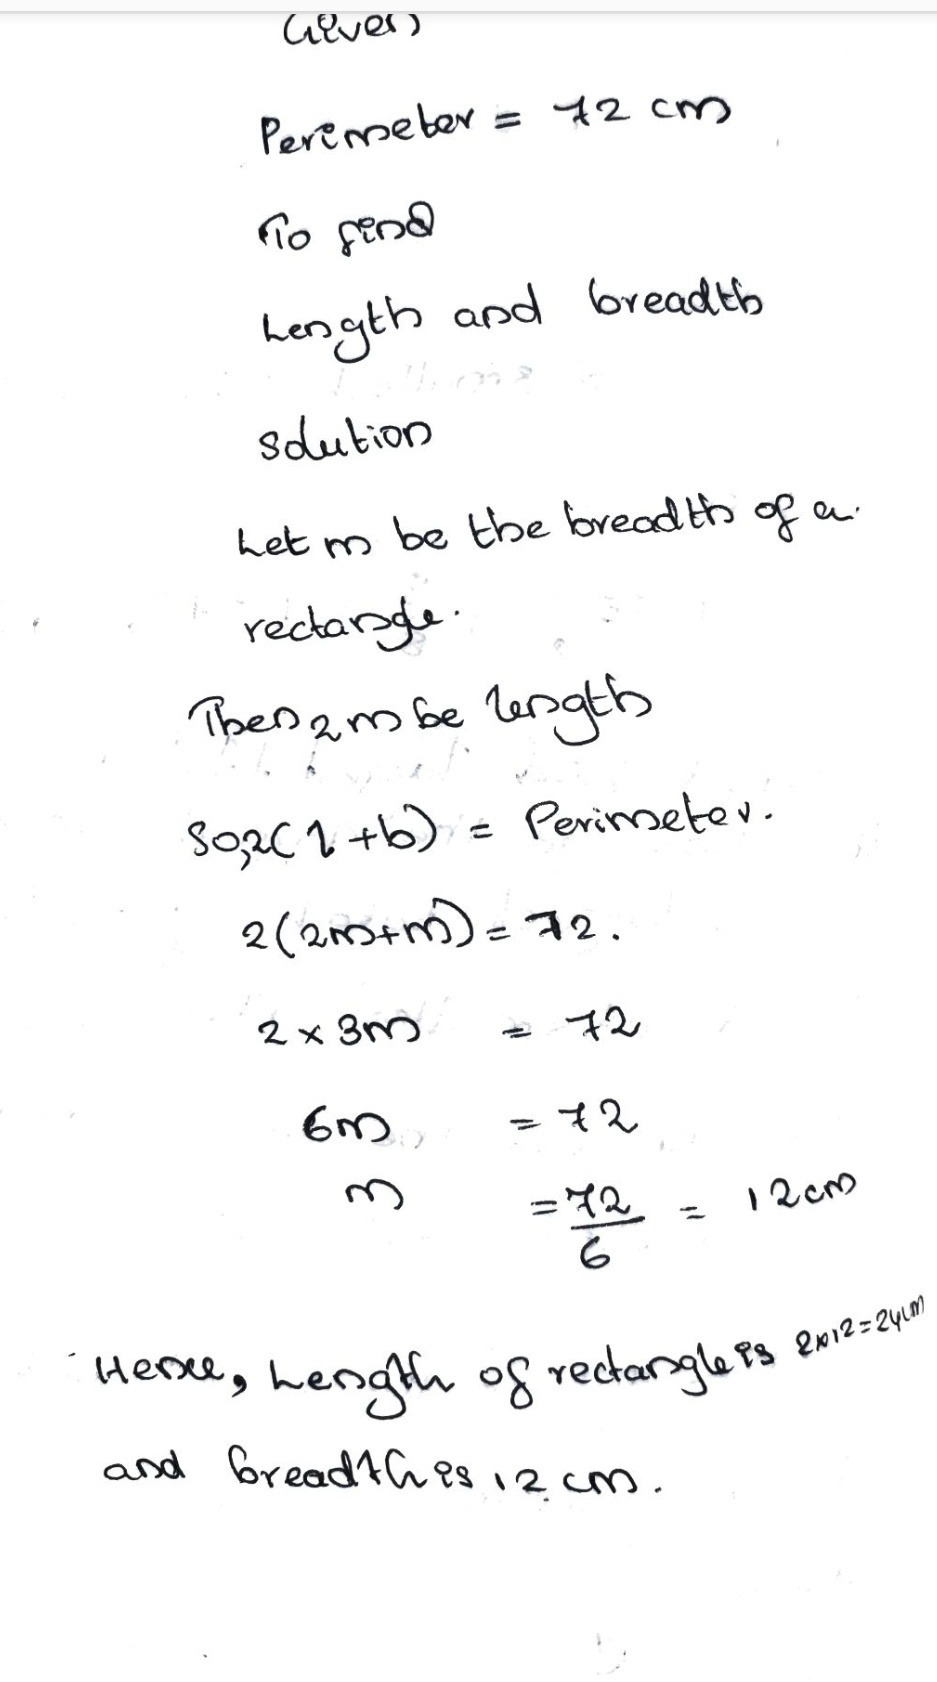 Given
Perimeter = 72 cm
To find
Length and breadth
Solution
Let m be the breadth of a
rectangle.
Then 2m be length
So, 2(l+b) = Perimeter.
2(2m+m) = 72.
2 × 3m = 72
6m = 72
m = 72/6 = 12cm
Hence, Length of rectangle is 2×12=24cm
and breadth is 12 cm.